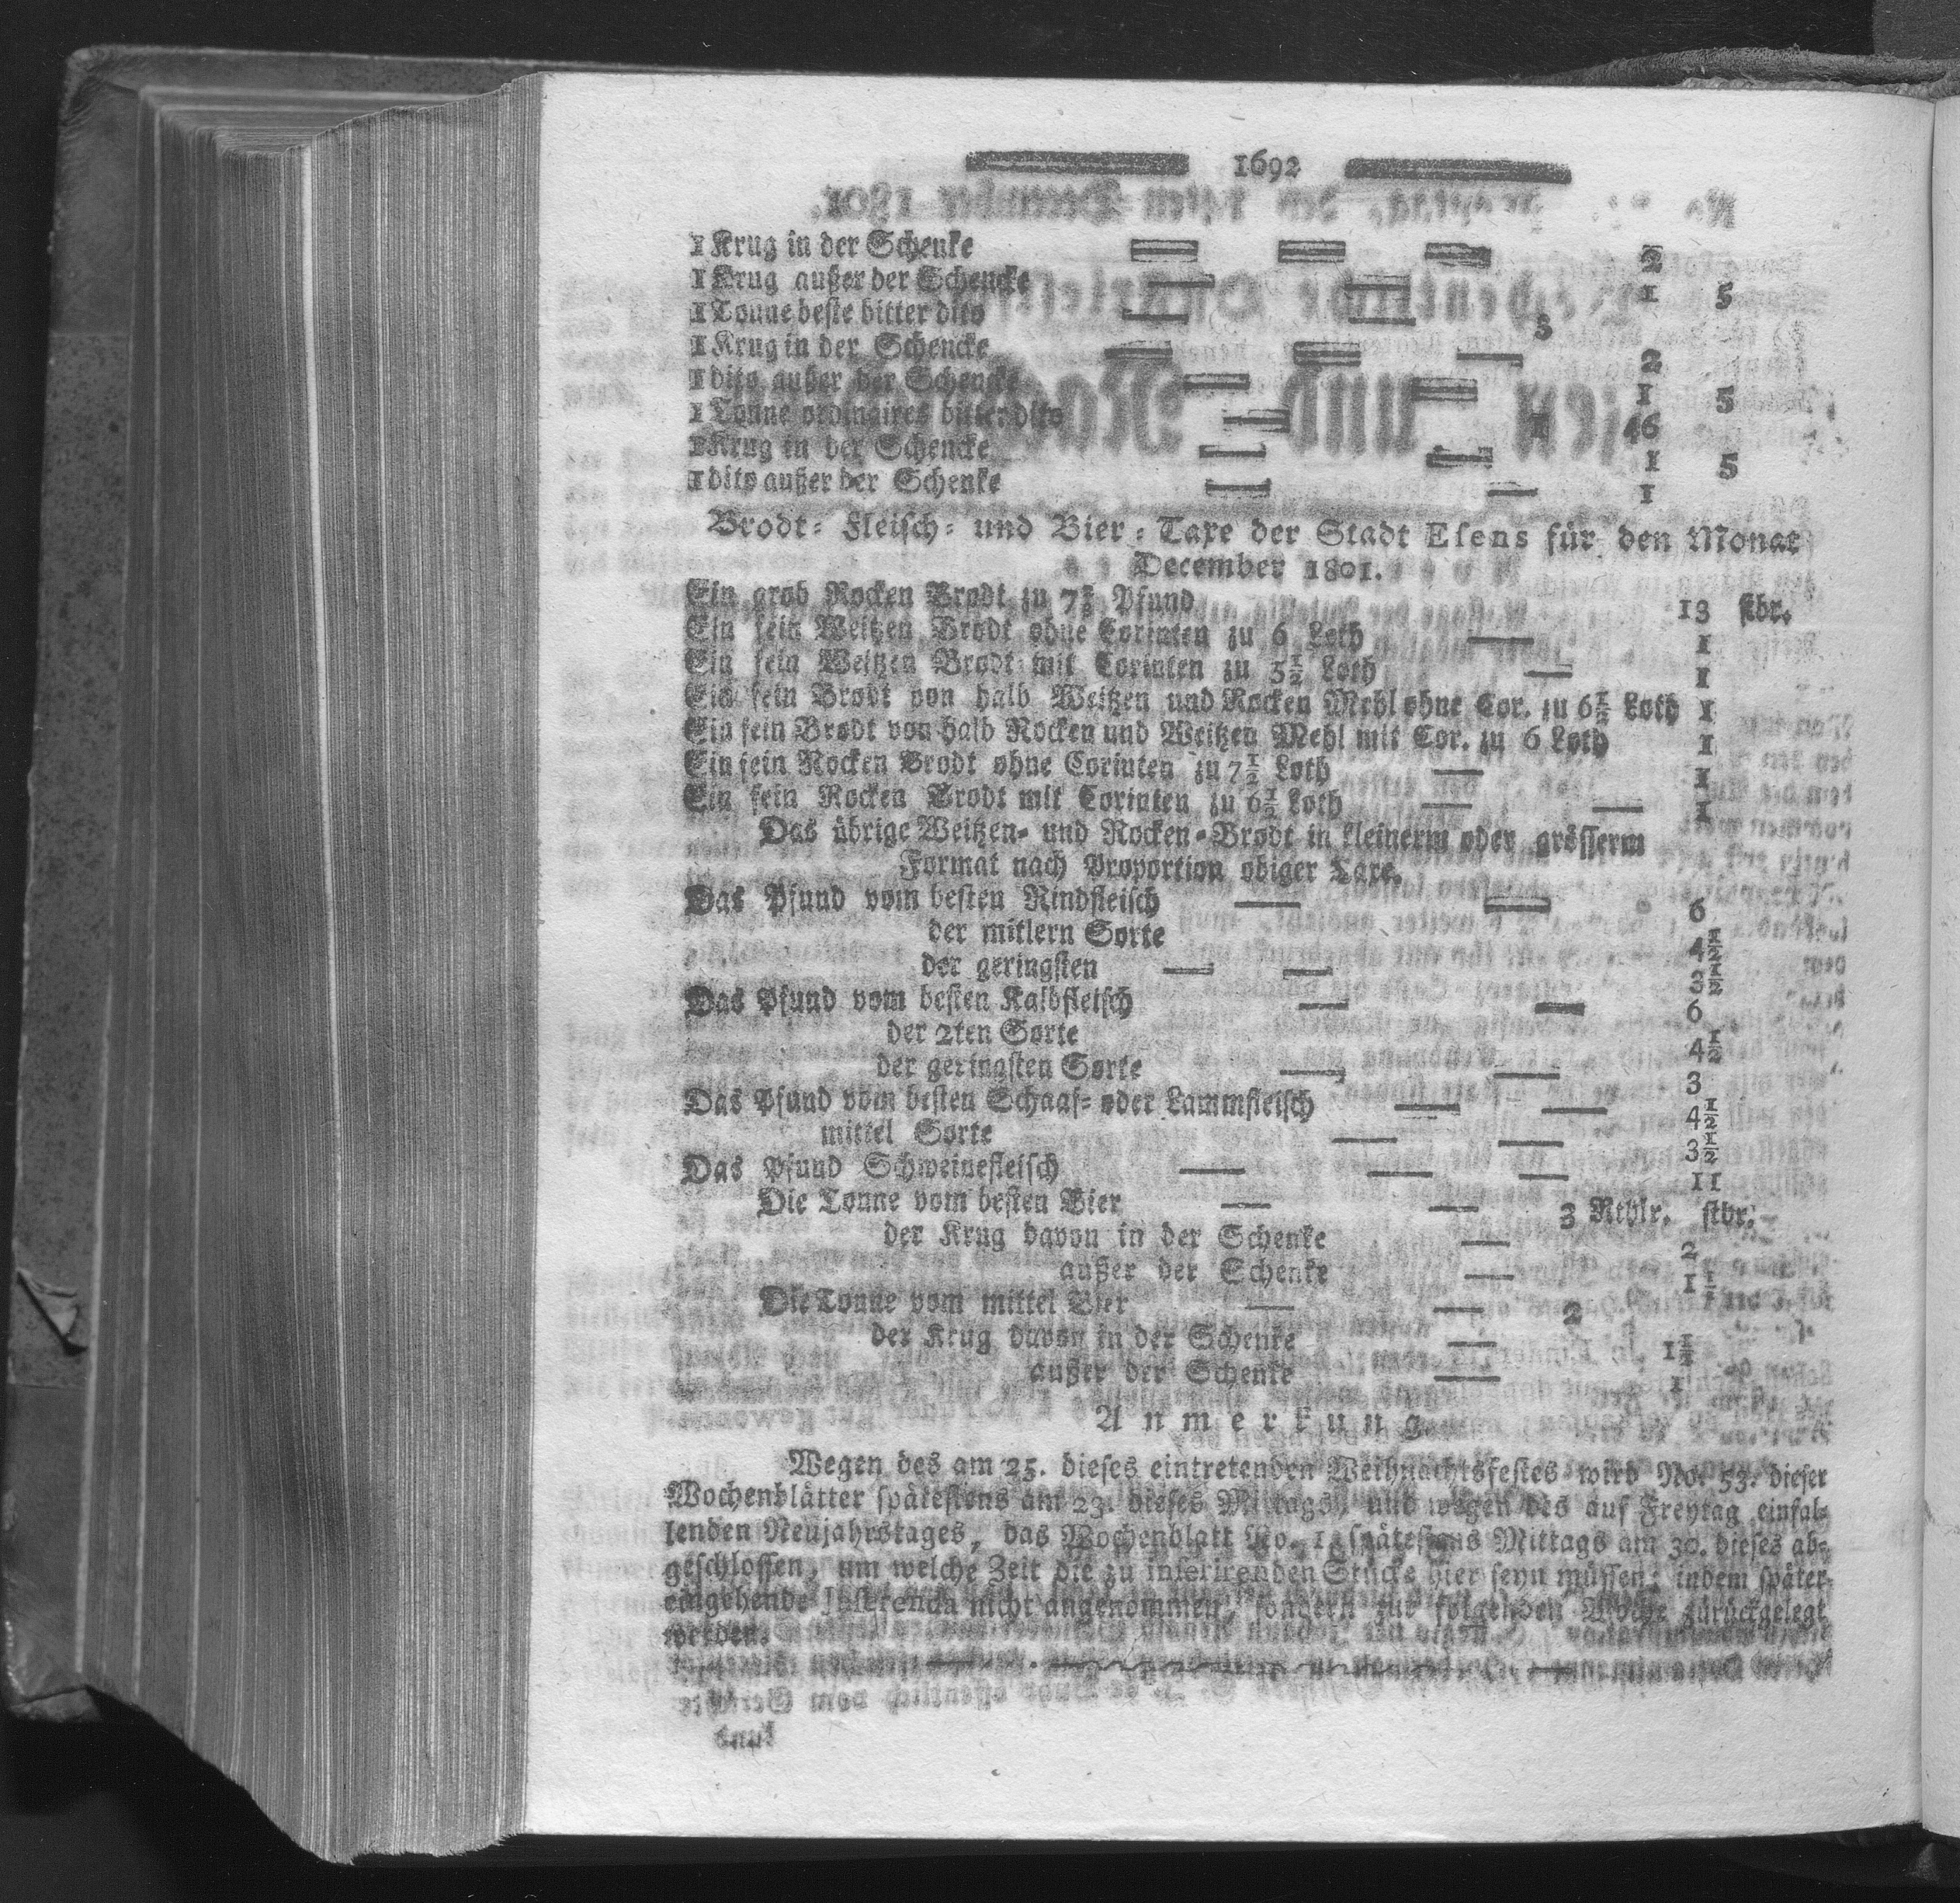 1692
1 Krug in der Schenke — — — 2
1 Krug außer der Schencke — — 1 5
1 Tonne beste bitter dito — — 3
1 Krug in der Schencke — — — 2
1 dito außer der Schencke — — 1 5
1 Tonne ordinaires bitter dito — 1 46
1 Krug in der Schencke — — 1 5
1 dito außer der Schenke — — 1
Brodt- Fleisch- und Bier-Taxe der Stadt Esens für den Monat
December 1801.
Ein grob Rocken Brodt zu 7½ Pfund 13 stbr.
Ein fein Weitzen Brodt ohne Corinten zu 6 Loth — 1
Ein fein Weitzen Brodt mit Corinten zu 5½ Loth — 1
Ein fein Brodt von halb Weitzen und Rocken Mehl ohne Cor. zu 6½ Loth 1
Ein fein Brodt von halb Rocken und Weitzen Mehl mit Cor. zu 6 Loth 1
Ein fein Rocken Brodt ohne Corinten zu 7½ Loth — 1
Ein fein Rocken Brodt mit Corinten zu 6½ Loth — — 1
Das übrige Weitzen- und Rocken-Brodt in kleinerm oder grösserm
Format nach Proportion obiger Taxe.
Das Pfund vom besten Rindfleisch — — 6
der mitlern Sorte 4½
der geringsten — — 3½
Das Pfund vom besten Kalbfleisch — — 6
der 2ten Sorte 4½
der geringsten Sorte — — 3
Das Pfund vom besten Schaaf- oder Lammfleisch — — 4½
mittel Sorte — — 3½
Das Pfund Schweinefleisch — — — 11
Die Tonne vom besten Bier — — 3 Rthlr. stbr.
der Krug davon in der Schenke — 2
außer der Schenke — 1½
Die Tonne vom mittel Bier — — 2
der Krug davon in der Schenke — 1½
außer der Schenke — 1
Anmerkung.
Wegen des am 25. dieses eintretenden Weihnachtsfestes wird No. 53. dieser
Wochenblätter spätestens am 23. dieses Mittags, und wegen des auf Freytag einfal-
lenden Neujahrstages, das Wochenblatt No. 1. spätestens Mittags am 30. dieses ab-
geschlossen, um welche Zeit die zu inserirenden Stücke hier seyn müssen; indem später
eingehende Inserenda nicht angenommen, sondern zur folgenden Woche zurückgelegt
werden.